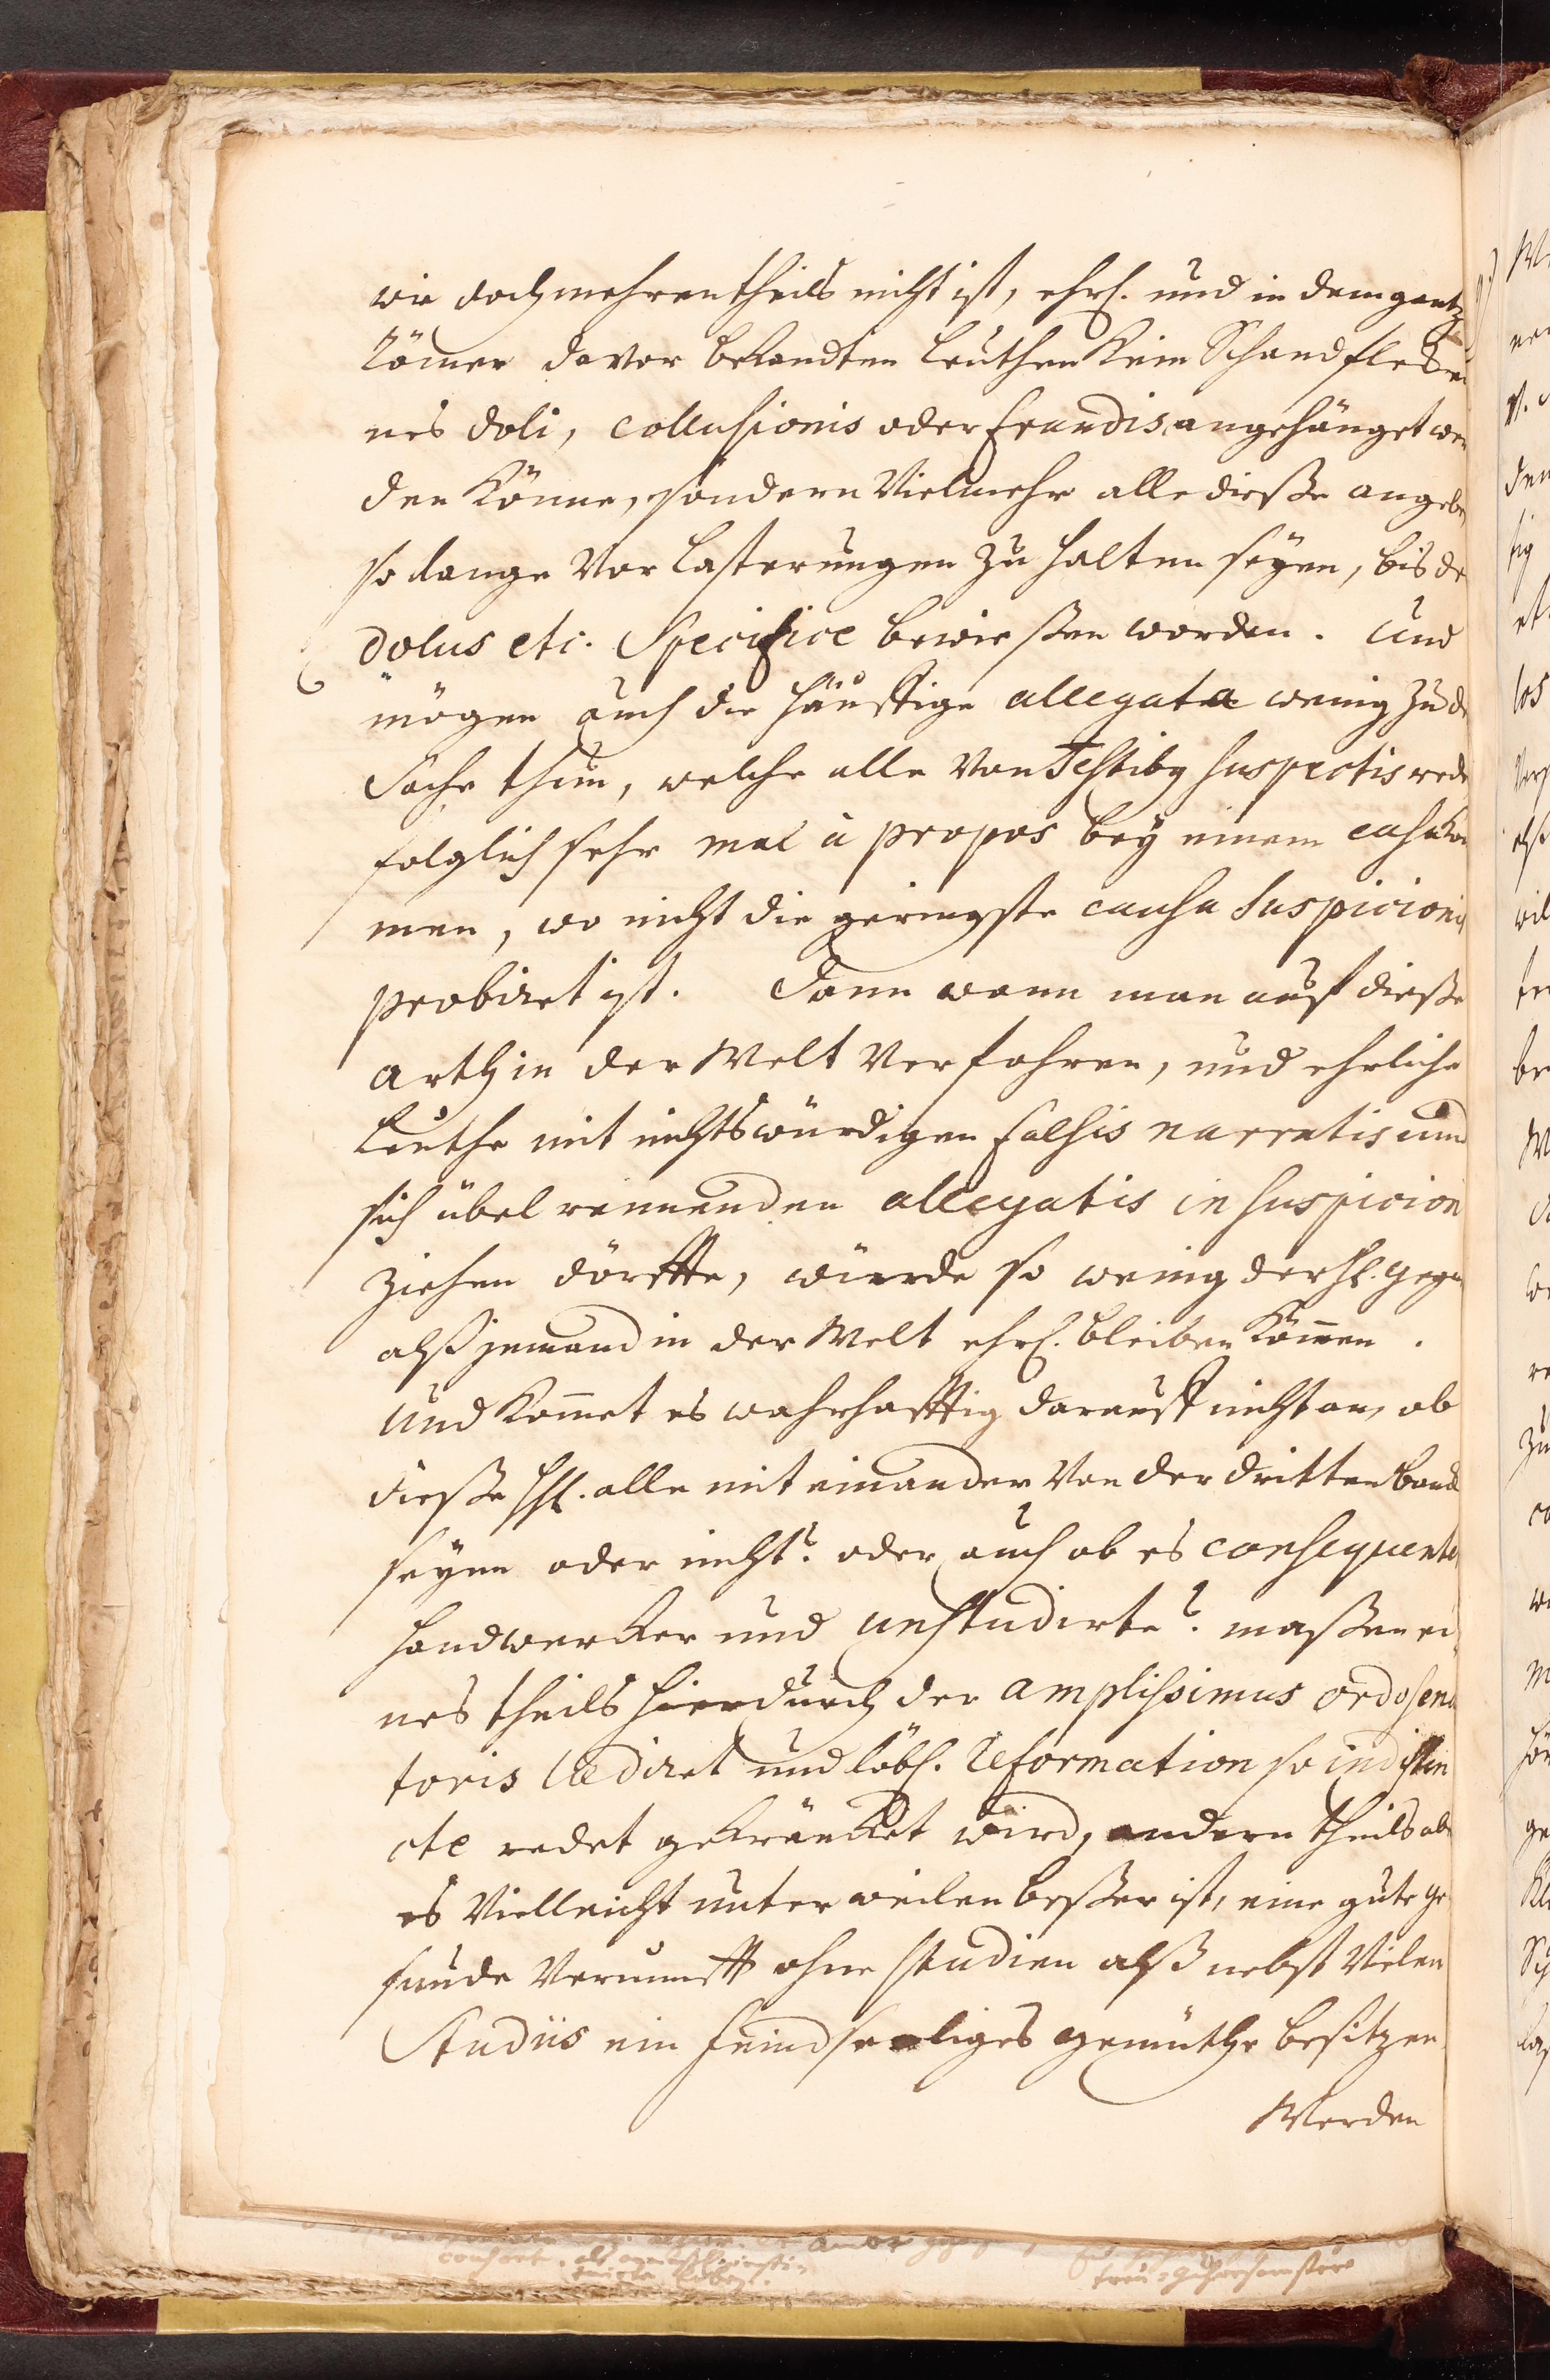 wie doch mehrentheils nicht ist, ehrl. und in dem gantz
Römer davor bekandten Leuthen kein Schandfleck ei
nes doli, collusionis oder fraudis angehänget wer
den könne, sondern vielmehr alle dieße angeben
so lange vor Lasterungen zu halten seyen, bis de
dolus etc. Specifice bewießen worden. Und
mögen auch die häuffige allegata wenig zu de
Sache thun, welche alle von Testibq suspectis rede
folglich sehr mal à propos bey einem casu kom
men, wo nicht die geringste causa suspicionis
probiret ist. Dann wann man auf dieße
arth in der Welt verfahren, und ehrliche
Leuthe mit nichtswürdigen falsis narratis und
sich übel reimenden allegatis in suspicion
ziehen dörffte, würde so wenig der H. Gegen
alß jemand in der Welt ehrl. bleiben können.
Und kom̄et es wahrhafftig darauff nicht an, ob
dieße HH. alle mit einander von der dritten banck
seyen oder nicht? oder auch ob es consequenter
Handwercker und unstudirte? maßen ei
nes theils hierdurch der amplissimus ordo sena
toris lædiret und löbl. Reformation so indistin
cte redet gekräncket wird, andern theils abe
es vielleicht unterweilen beßer ist, eine gute ge
sunde Vernunfft ohne studien alß nebst vielen
Studiis ein feindseeliges gemüthe besitzen.
Werden